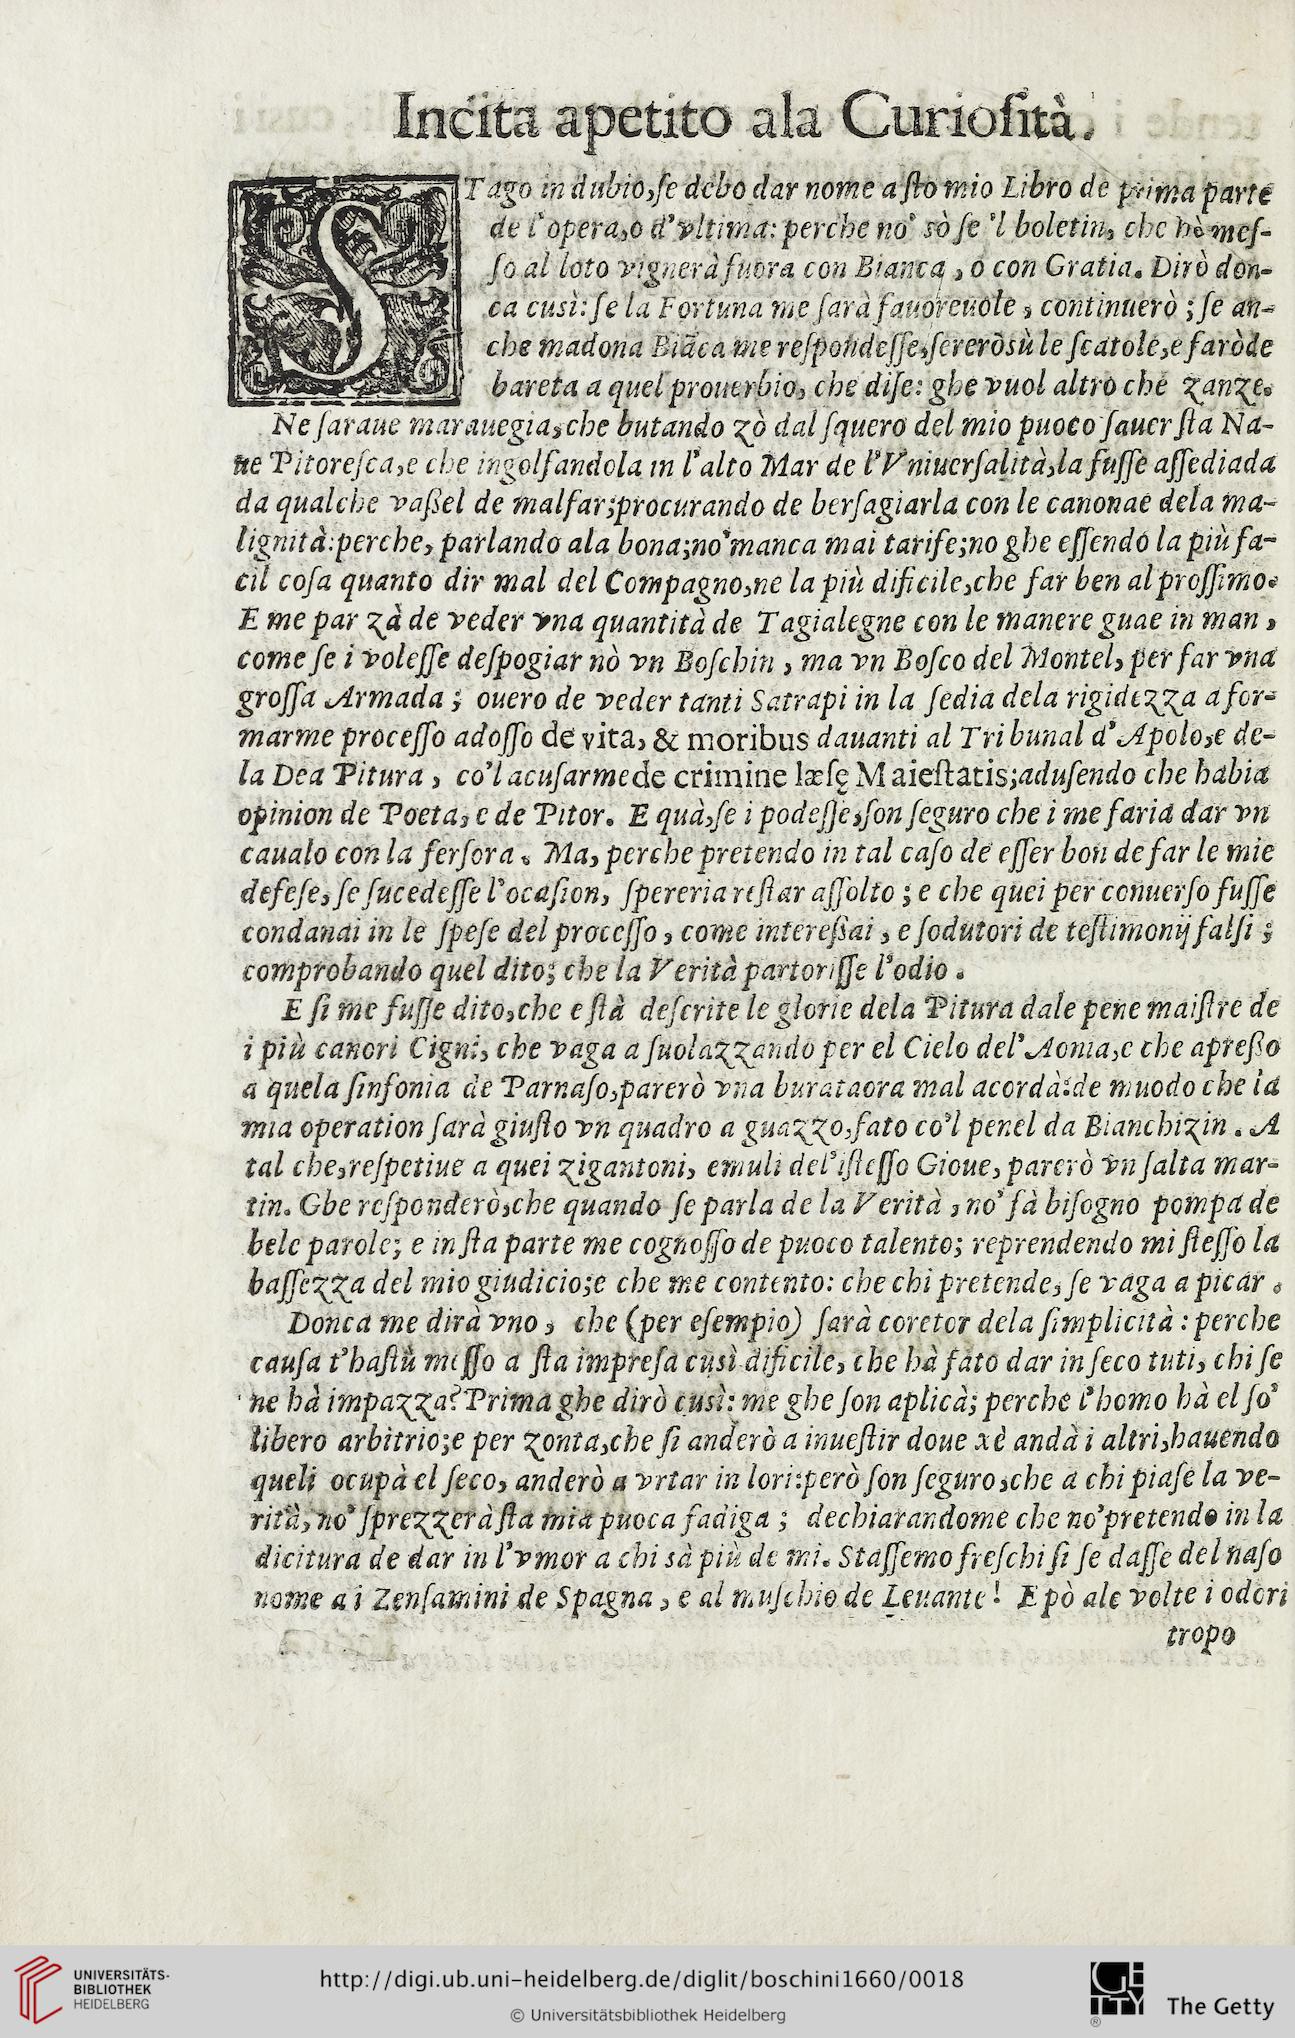 Incita apetito ala Curioſità.
STago in dubio, ſe debo dar nome a ſto mio Libro de prima parte
de l'opera, o d'vltima: perche no' sò ſe 'l boletin, che hè meſ-
ſo al loto vignerà fuora con Bianca, o con Gratia. Dirò don-
ca cusì: ſe la Fortuna me ſarà fauoreuole, continuerò; ſe an-
che madona Biãca me reſpondeſſe, ſererò sù le ſcatole, e farò de
bareta a quel prouerbio, che diſe: ghe vuol altro che zanze.
Ne ſaraue marauegia, che butando zò dal ſquero del mio puoco ſauer ſta Na-
ue Pitoreſca, e che ingolfandola in l'alto Mar de l'Vniuerſalità, la fuſſe aſſediada
da qualche vaßel de malfar; procurando de berſagiarla con le canonae dela ma-
lignità: perche, parlando ala bona; no' manca mai tarife; no ghe eſſendo la più fa-
cil coſa quanto dir mal del Compagno, ne la più dificile, che far ben al proſſimo.
E me par zà de veder vna quantità de Tagialegne con le manere guae in man,
come ſe i voleſſe deſpogiar nò vn Boſchin, ma vn Boſco del Montel, per far vna
groſſa Armada; ouero de veder tanti Satrapi in la ſedia dela rigidezza a for-
marme proceſſo adoſſo de vita, & moribus dauanti al Tribunal d'Apolo, e de-
la Dea Pitura, co'l acuſarme de crimine læſę Maieſtatis; aduſendo che habia
opinion de Poeta, e de Pitor. E quà, ſe i podeſſe, ſon ſeguro che i me faria dar vn
caualo con la ferſora. Ma, perche pretendo in tal caſo de eſſer bon de far le mie
defeſe, ſe ſucedeſſe l'ocaſion, ſpereria reſtar aſſolto; e che quei per conuerſo fuſſe
condanai in le ſpeſe del proceſſo, come intereßai, e ſodutori de teſtimonij falſi;
comprobando quel dito; che la Verità partoriſſe l'odio.
E ſi me fuſſe dito, che e ſtà deſcrite le glorie dela Pitura dale pene maiſtre de
i più canori Cigni, che vaga a ſuolazzando per el Cielo del'Aonia, e che apreßo
a quela ſinfonia de Parnaſo, parerò vna burataora mal acordà: de muodo che la
mia operation ſarà giuſto vn quadro a guazzo, fato co'l penel da Bianchizin. A
tal che, reſpetiue a quei zigantoni, emuli del'iſteſſo Gioue, parerò vn ſalta mar-
tin. Ghe reſponderò, che quando ſe parla de la Verità, no' fà biſogno pompa de
bele parole; e in ſta parte me cognoſſo de puoco talento; reprendendo mi ſteſſo la
baſſezza del mio giudicio; e che me contento: che chi pretende, ſe vaga a picar.
Donca me dirà vno, che (per eſempio) ſarà coretor dela ſimplicità: perche
cauſa t'haſtu meſſo a ſta impreſa cusì dificile, che hà fato dar in ſeco tuti, chi ſe
ne hà impazzà? Prima ghe dirò cusì: me ghe ſon aplicà; perche l'homo hà el ſo'
libero arbitrio; e per zonta, che ſi anderò a inueſtir doue xè andà i altri, hauendo
queli ocupà el ſeco, anderò a vrtar in lori: però ſon ſeguro, che a chi piaſe la ve-
rità, no' ſprezzerà ſta mia puoca fadiga; dechiarandome che no' pretendo in la
dicitura de dar in l'vmor a chi sà più de mi. Staſſemo freſchi ſi ſe daſſe del naſo
nome a i Zenſamini de Spagna, e al muſchio de Leuante! E pò ale volte i odori
tropo
UNIVERSITÄTS-
BIBLIOTHEK
HEIDELBERG
http://digi.ub.uni-heidelberg.de/diglit/boschini1660/0018
© Universitätsbibliothek Heidelberg
GETTY
The Getty